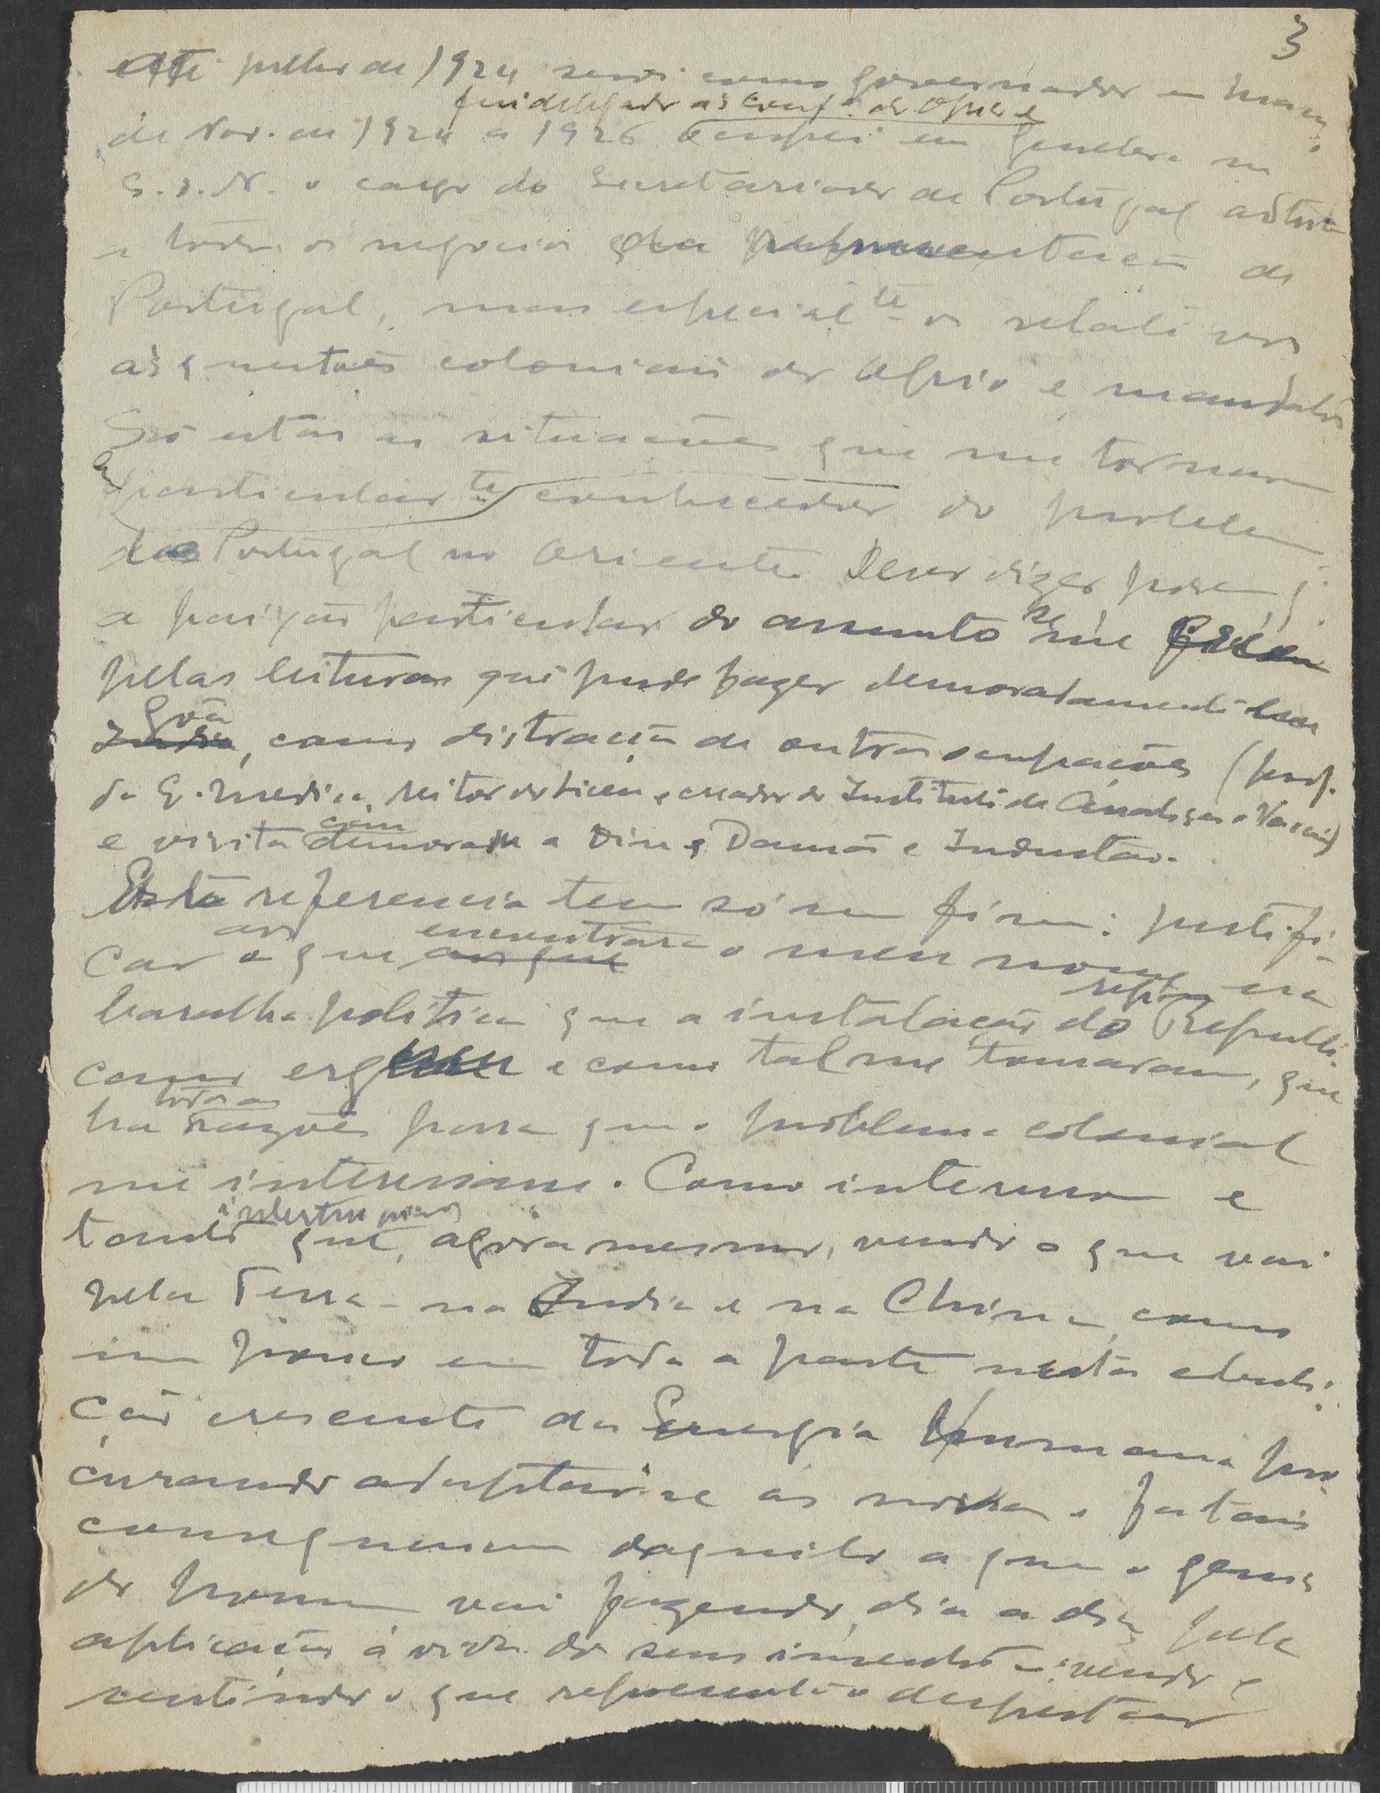 3
Até julho de 1924 servi como governador em Macau;
fui delegado às Conf.as do Opio e
de Nov. de 1924 a 1926 ocupei em Genebra na
S. D. N. o cargo do Secretariado de Portugal adstrito
a todos os negocios da representação de
Portugal, mas especialte os relativos
às questões coloniais do Opio e mandatos
São estas as situações que me tornam
particularte conhecedor do problema
de Portugal no Oriente. Devo dizer porem, q.
a paixão particular do assunto me
pelas leituras que pude fazer demoradamente em
Goa
India, como distração de outras ocupações (prof.
da E. Medica, reitor do liceu e creador do Instituto de Analises e Vacina)
com
e visita demorada a Diu e Damão e Industão.
Esta referencia tem só um fim: justifi-
aos encontraram
car o que aos que o meu nome na
baralha politica que a instalação do Republi
como ergueu e como tal me tomaram, que
todas as
ha razões para que o problema colonial
me interessasse. Como interessa e
tanto que, agora mesmo, vendo o que vai
pela Terra - na India e na China, como
um pouco em toda a parte nesta
ção crescente da Energia Humana pro-
curando adaptar-se as novas e fataes
consequencias daquilo a que o genio
do homem vai fazendo, dia a dia, pela
aplicação á vida do seus inventos - vendo e
sentindo o que representa o despertar